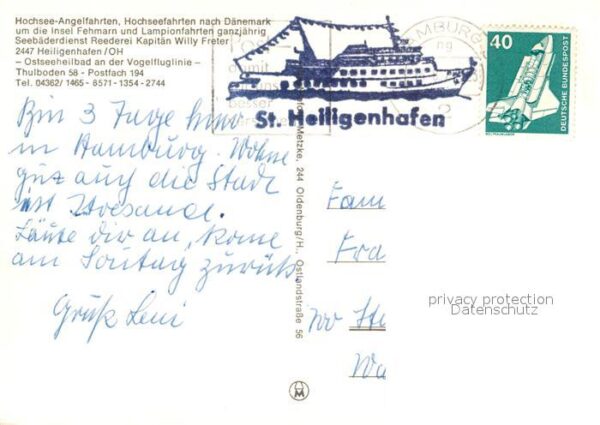 Hochsee-Angelfahrten, Hochseefahrten nach Dänemark
um die Insel Fehmarn und Lampionfahrten ganzjährig
Seebäderdienst Reederei Kapitän Willy Freter
2447 Heiligenhafen/OH
– Ostseeheilbad an der Vogelfluglinie –
Thulboden 58 - Postfach 194
Tel. 04362/1465 - 8571 - 1354 - 2744
St. Heiligenhafen
40
DEUTSCHE BUNDESPOST
Bin 3 Tage
in Hamburg. Wohne
gut auch die Stadt
ist
Läute dir an, kome
am Sontag zurück.
Gruß Leni
Metzke, 244 Oldenburg/H., Ostlandstraße 56
Fam
Fra
Wa
privacy protection
Datenschutz